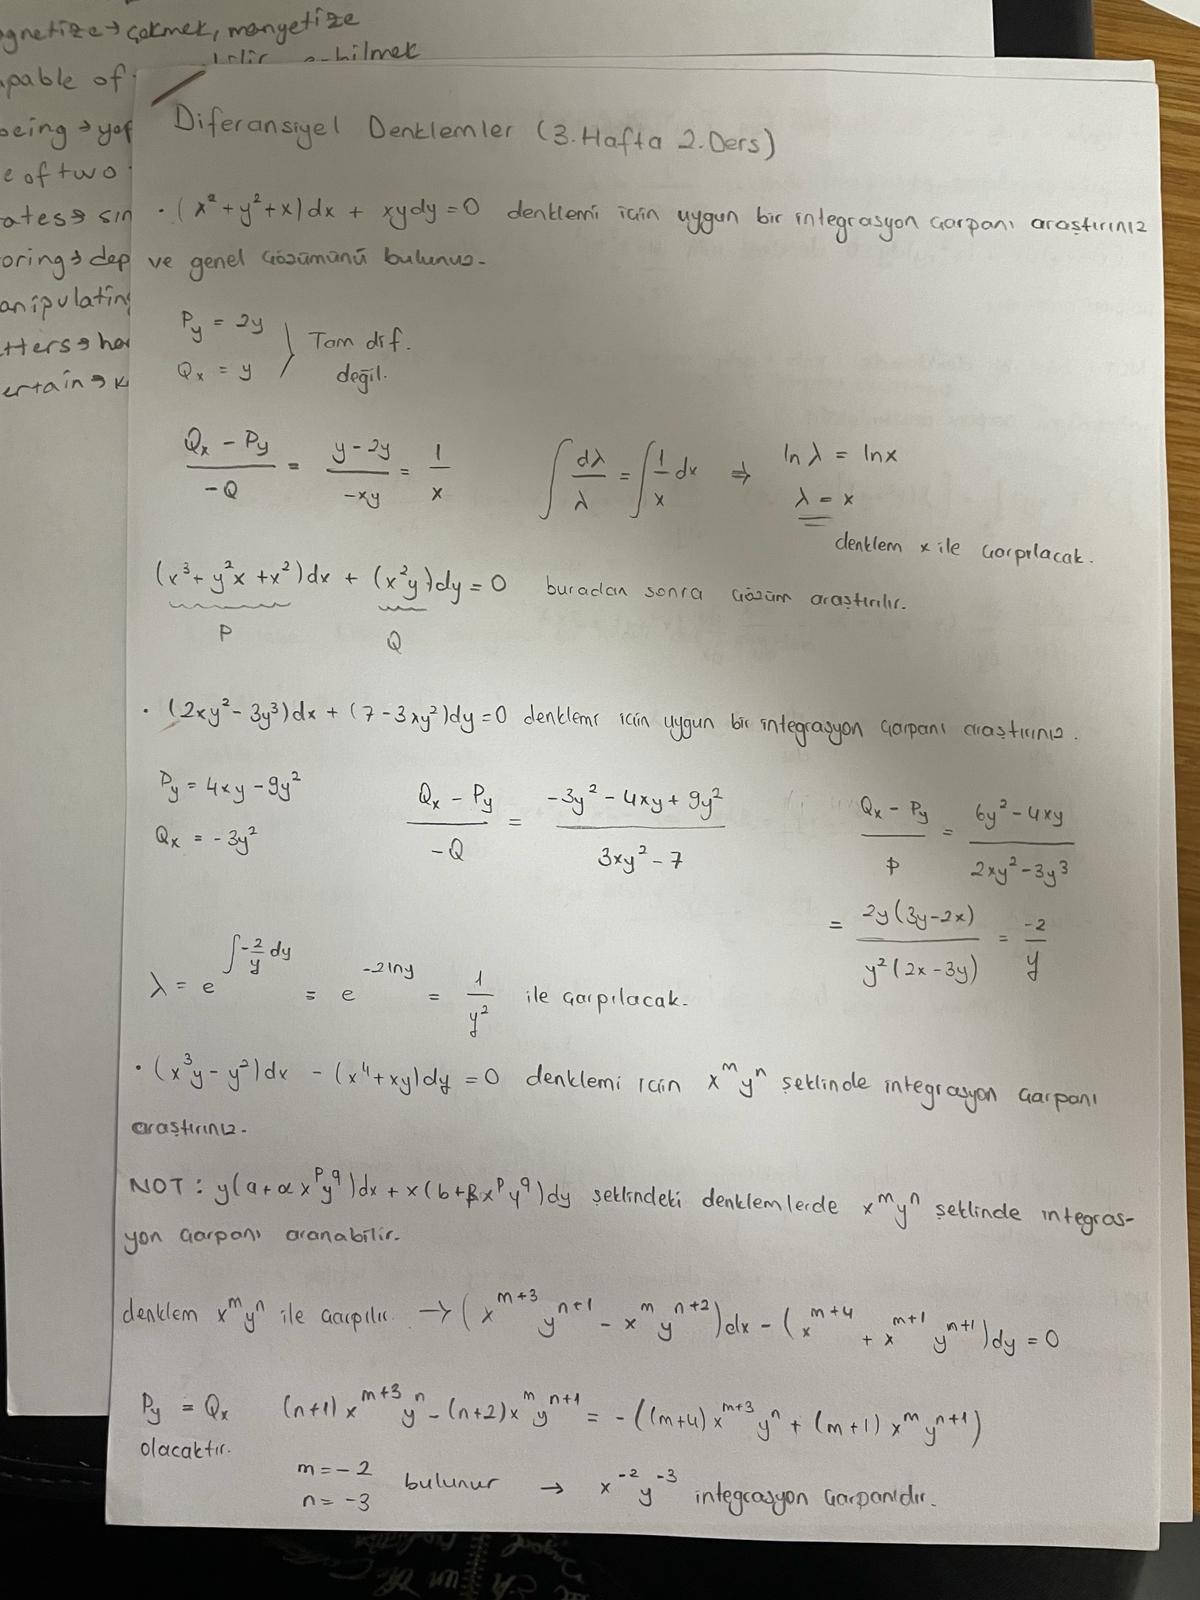 gnetize → çekmek, manyetize
pable of
being → yap
e of two
ates → sin
oring → dep
anipulating
tters → ha
ertain → k
Diferansiyel Denklemler (3.Hafta 2.Ders)
• (x² + y² + x)dx + xydy = 0 denklemi için uygun bir integrasyon çarpanı araştırınız
ve genel çözümünü bulunuz.
Py = 2y
Qx = y } Tam dif. değil.
(Qx - Py)/(-Q) = (y - 2y)/(-xy) = 1/x   ∫ dλ/λ = ∫ 1/x dx ⇒ ln λ = lnx
λ = x
denklem x ile çarpılacak.
(x³ + y²x + x²)dx + (x²y)dy = 0 buradan sonra çözüm araştırılır.
P   Q
• (2xy² - 3y³)dx + (7 - 3xy²)dy = 0 denklemi için uygun bir integrasyon çarpanı araştırınız.
Py = 4xy - 9y²
Qx = -3y²
(Qx - Py)/(-Q) = (-3y² - 4xy + 9y²)/(3xy² - 7)
(Qx - Py)/P = (6y² - 4xy)/(2xy² - 3y³)
= 2y(3y - 2x)/(y²(2x - 3y)) = -2/y
λ = e^(∫ -2/y dy) = e^(-2lny) = 1/y² ile çarpılacak.
• (x³y - y²)dx - (x⁴ + xy)dy = 0 denklemi için x^m y^n şeklinde integrasyon çarpanı
araştırınız.
NOT: y(a + αx^p y^q)dx + x(b + βx^p y^q)dy şeklindeki denklemlerde x^m y^n şeklinde integras-
yon çarpanı aranabilir.
denklem x^m y^n ile çarpılır. → (x^(m+3) y^(n+1) - x^m y^(n+2))dx - (x^(m+4) + x^(m+1) y^(n+1))dy = 0
Py = Qx   (n+1)x^(m+3) y^n - (n+2)x^m y^(n+1) = -((m+4)x^(m+3) y^n + (m+1)x^m y^(n+1))
olacaktır.
m = -2
n = -3 bulunur → x^-2 y^-3 integrasyon çarpanıdır.